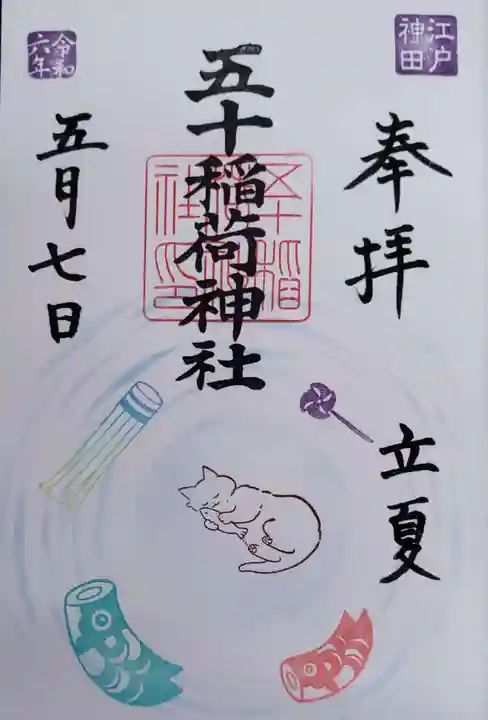 江戸
神田
奉拝
立夏
五十稲荷神社
令和
六年
五月七日